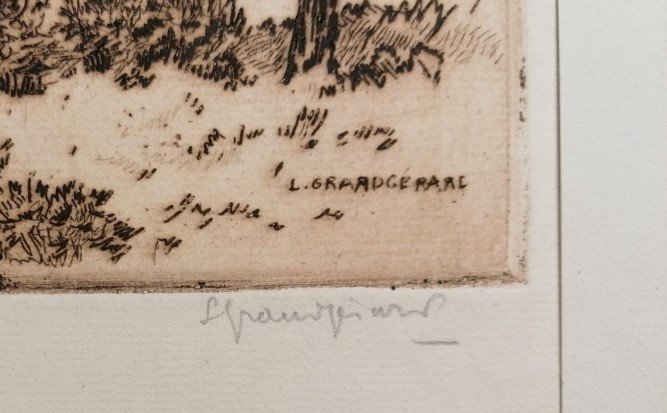 L. GRANDGÉRARD
LGrandgérard